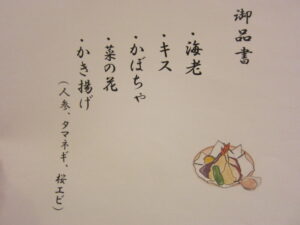 御品書
・海老
・キス
・かぼちゃ
・菜の花
・かき揚げ
（人参、タマネギ、桜エビ）